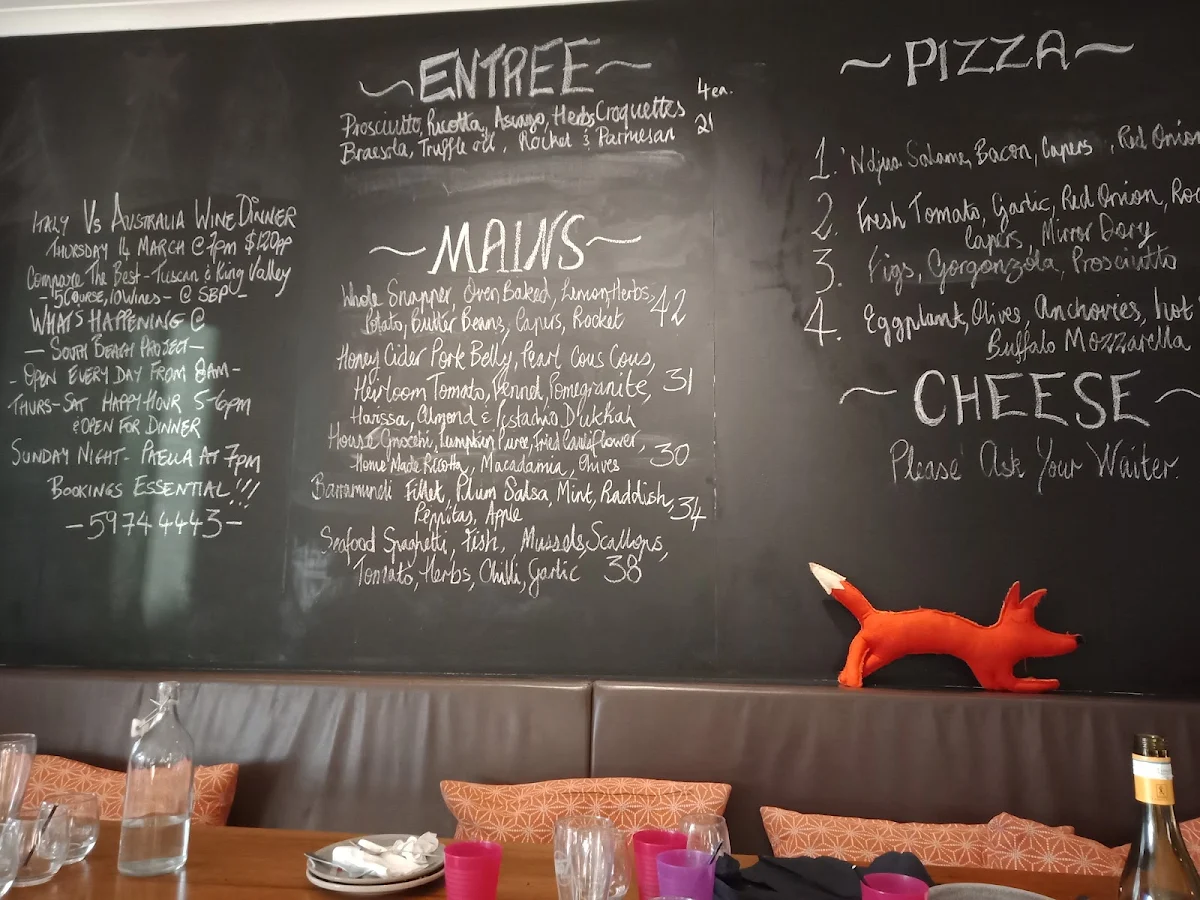 ITALY VS AUSTRALIA WINE DINNER
THURSDAY 14 MARCH @ 7pm $120pp
COMPARE THE BEST - TUSCAN & KING VALLEY
- 5 COURSE, 10 WINES - @ SBP -
WHATS HAPPENING @
- SOUTH BEACH PROJECT -
- OPEN EVERY DAY FROM 8AM -
THURS - SAT HAPPY HOUR 5-6pm
& OPEN FOR DINNER
SUNDAY NIGHT - PAELLA AT 7pm
BOOKINGS ESSENTIAL!!!
- 59744443 -
~ ENTREE ~
Prosciutto, Ricotta, Asiago, Herbs Croquettes 4ea.
Braesola, Truffle oil, Rocket & Parmesan 21
~ MAINS ~
Whole Snapper, Oven Baked, Lemon, Herbs, 42
Potato, Butter Beans, Capers, Rocket
Honey Cider Pork Belly, Pearl Cous Cous,
Heirloom Tomato, Fennel, Pomegranite, 31
Harissa, Almond & Pistachio Dukkah
House Gnocchi, Pumpkin Puree, Fried Cauliflower,
Home Made Ricotta, Macadamia, Chives 30
Barramundi Fillet, Plum Salsa, Mint, Raddish,
Peppitas, Apple 34
Seafood Spaghetti, Fish, Mussels, Scallops,
Tomato, Herbs, Chilli, Garlic 38
~ PIZZA ~
1. 'Ndjua Salame, Bacon, Capers, Red Onion
2. Fresh Tomato, Garlic, Red Onion, Roc
Capers, Mirror Dory
3. Figs, Gorgonzola, Prosciutto
4. Eggplant, Olives, Anchovies, hot
Buffalo Mozzarella
~ CHEESE ~
Please Ask Your Waiter.